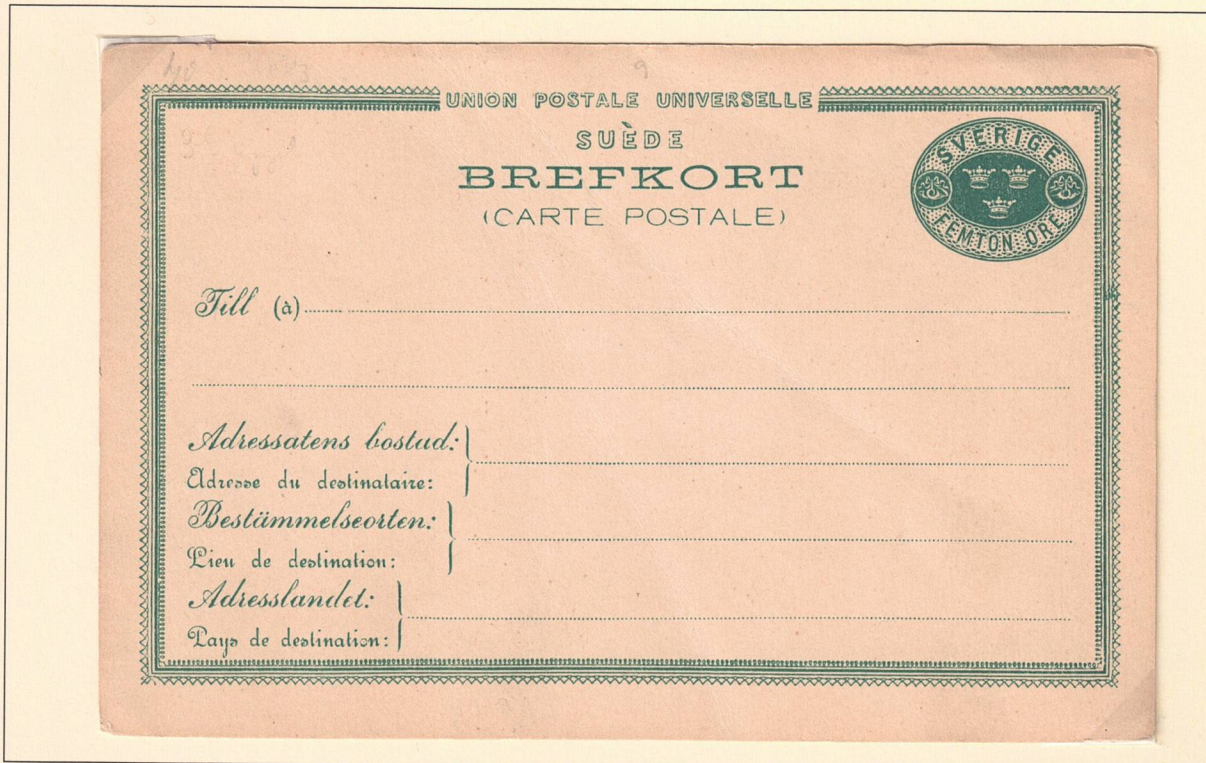 UNION POSTALE UNIVERSELLE
SUÈDE
BREFKORT
(CARTE POSTALE)
SVERIGE
FEMTON ÖRE
Till (à)
Adressatens bostad:
Adresse du destinataire:
Bestämmelseorten:
Lieu de destination:
Adresslandet:
Pays de destination:
9